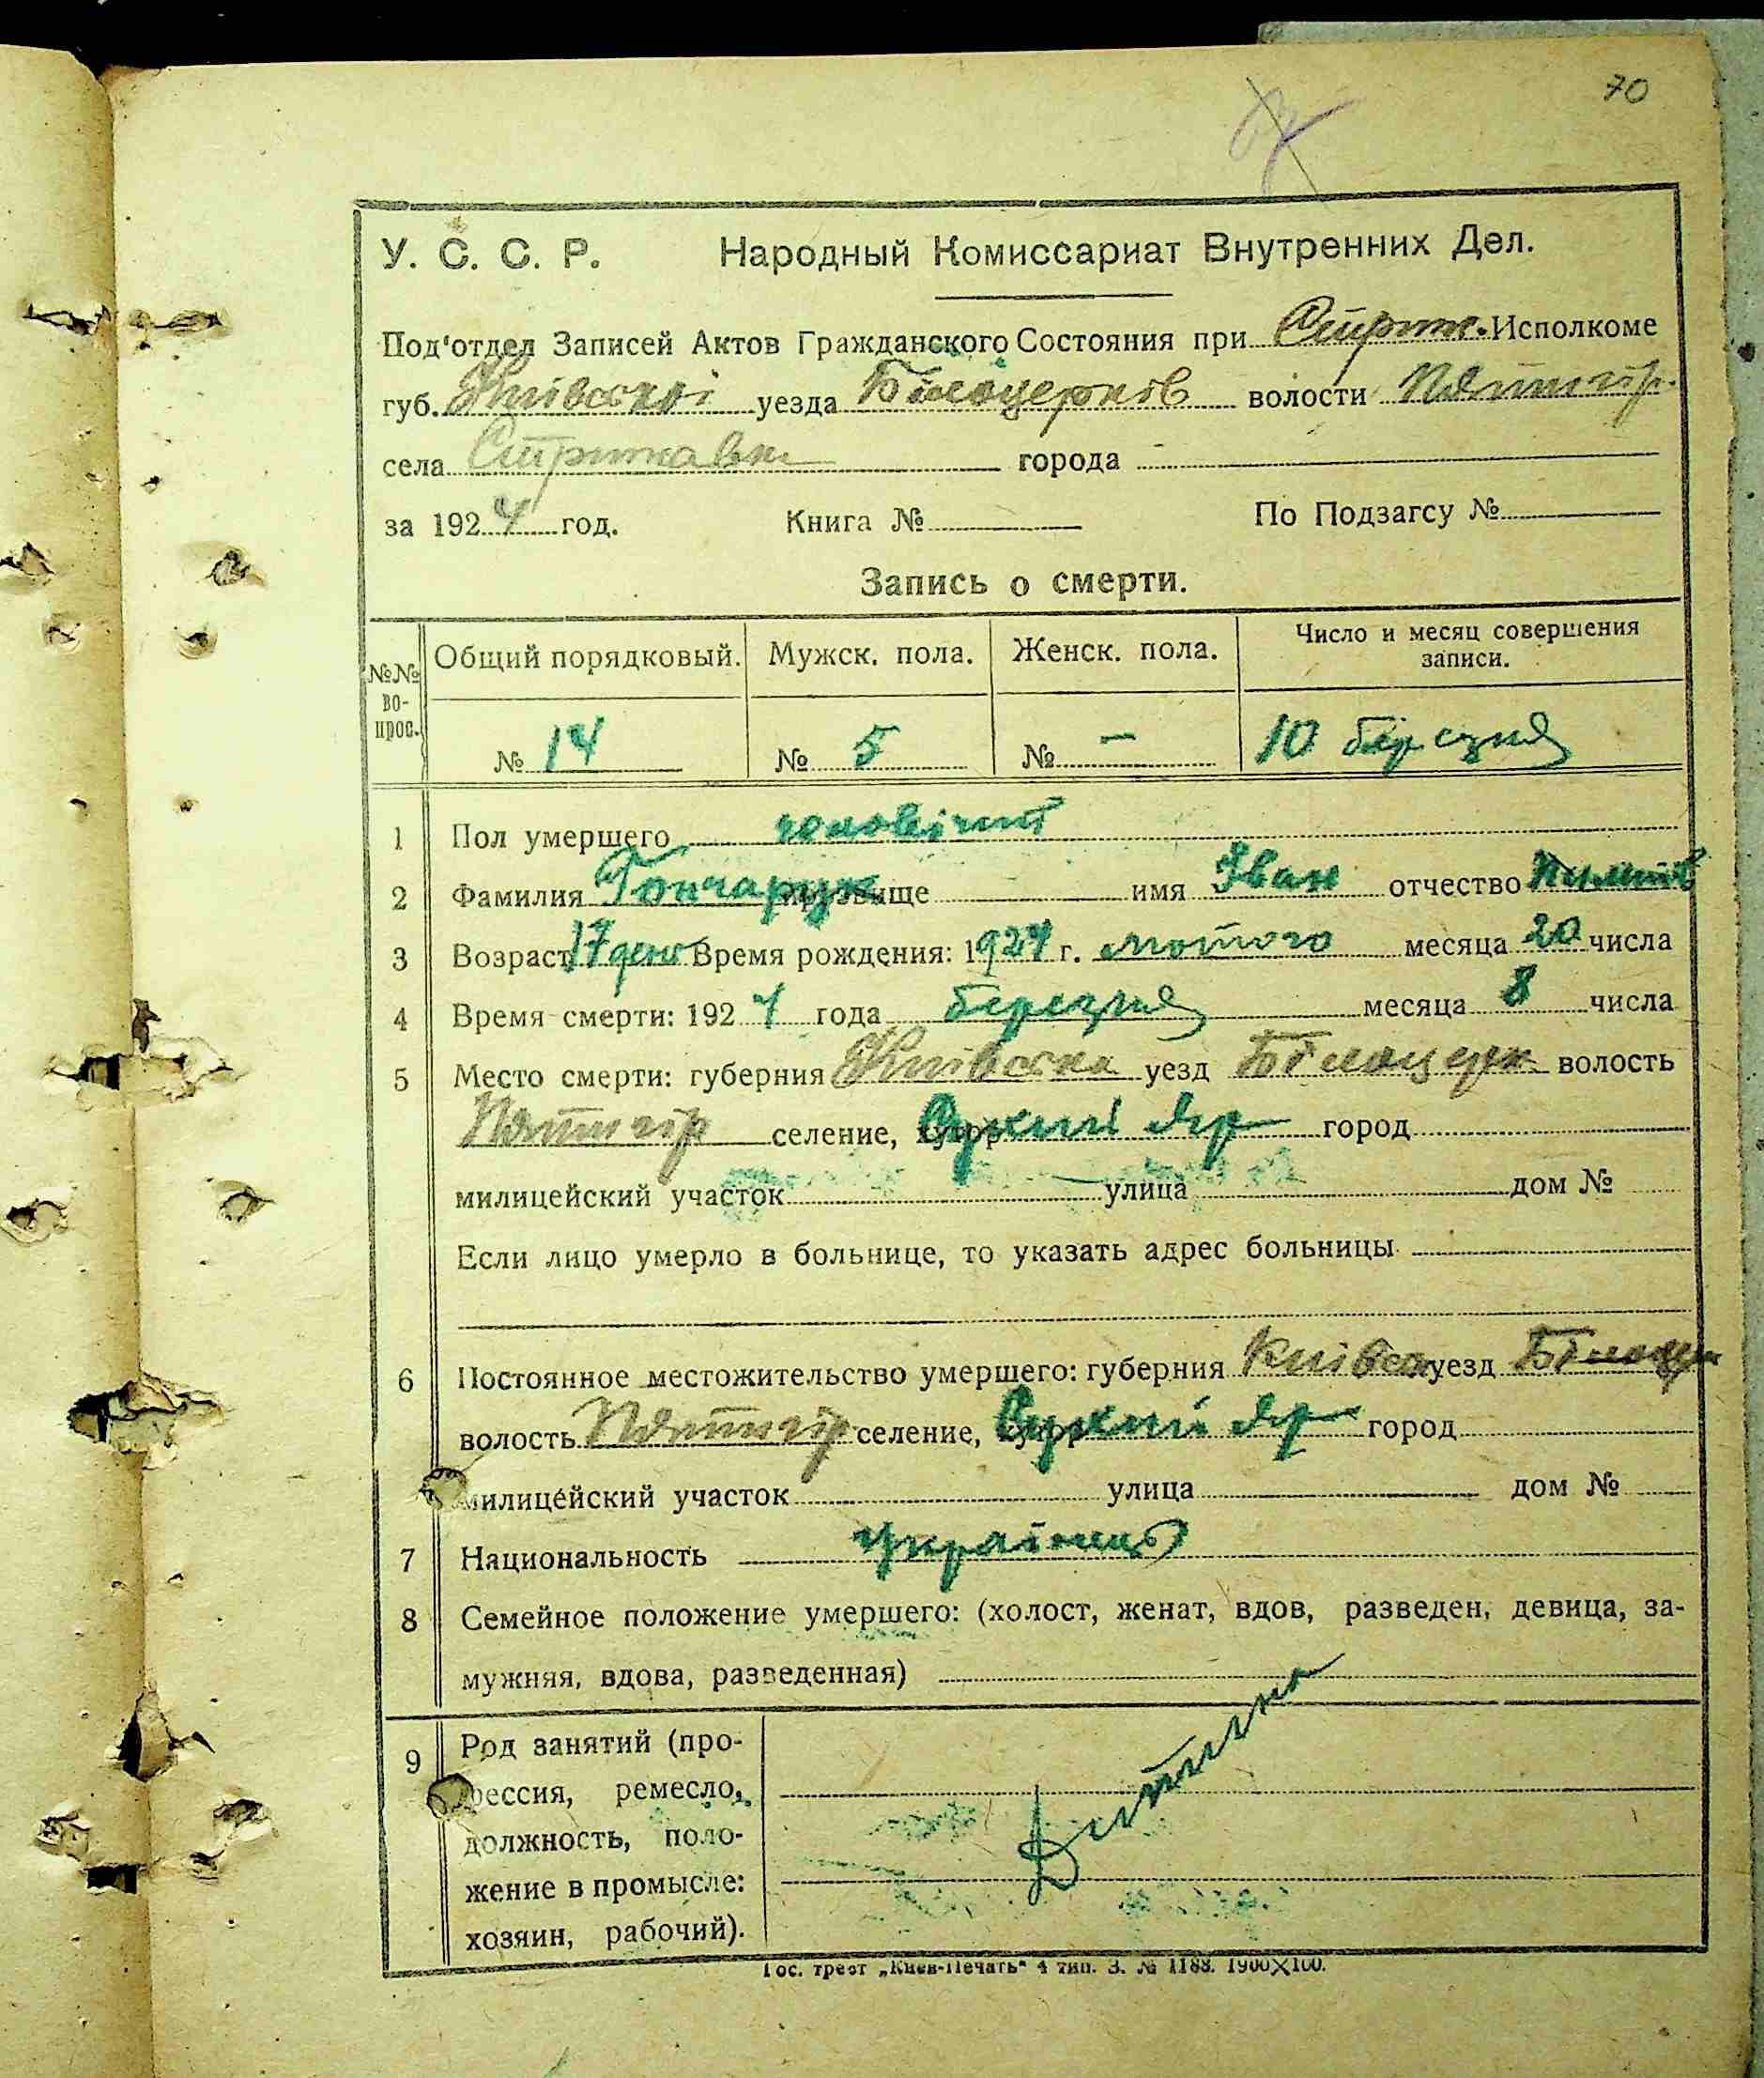 70
У. С. С. Р. Народный Комиссариат Внутренних Дел.
Под'отдел Записей Актов Гражданского Состояния при Стриж. Исполкоме
губ. Київської уезда Білоцерків волости Пятигір.
села Стрижавки города
за 1924 год. Книга № По Подзагсу №
Запись о смерти.
№№ во-прос. Общий порядковый. Мужск. пола. Женск. пола. Число и месяц совершения записи.
№ 14 № 5 № — 10 березня
1 Пол умершего чоловічий
2 Фамилия Гончарук прозвище имя Іван отчество
3 Возраст 17 день Время рождения: 1924 г. лютого месяца 20 числа
4 Время смерти: 1924 года березня месяца 8 числа
5 Место смерти: губерния Київська уезд Білоцерк волость
Пятигір селение, хутор Сухий Яр город
милицейский участок улица дом №
Если лицо умерло в больнице, то указать адрес больницы
6 Постоянное местожительство умершего: губерния Київськ уезд Білоцерк
волость Пятигір селение, хутор Сухий Яр город
милицейский участок улица дом №
7 Национальность українець
8 Семейное положение умершего: (холост, женат, вдов, разведен, девица, за-
мужняя, вдова, разведенная)
9 Род занятий (про-
фессия, ремесло,
должность, поло-
жение в промысле:
хозяин, рабочий).
Дитина
Гос. трест „Киев-Печать" 4 тип. З. № 1188. 1900X100.